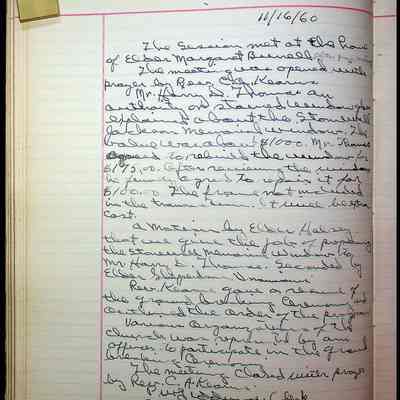 11/16/60
The Session met at the home
of Elder Margaret Burnell
The meeting was opened with
prayer by Rev. Kearns
Mr. Harry L. Thomas an
authority on stained windows
explained about the Stonewall
Jackson Memorial window. The
value was about $1000. Mr. Thomas
agreed to rebuild the window for
$175.00. After reviewing the window
he agreed to repair it for
$100.00. The frame not included
in the transaction. It will be extra
cost.
A Motion by Elder Halsey
that we give the job of preparing
the Stonewall Memorial window to
Mr. Harry L. Thomas. Seconded by
Elder Shepard. Unanimous.
Rev. Kearns gave a resume of
the ground breaking Ceremony and
outlined the order of the program
Various Organizations of the
church was represented by an
officer to participate in the ground
breaking Ceremony.
The meeting closed with prayer
by Rev. C. A. Kearns.
Clerk